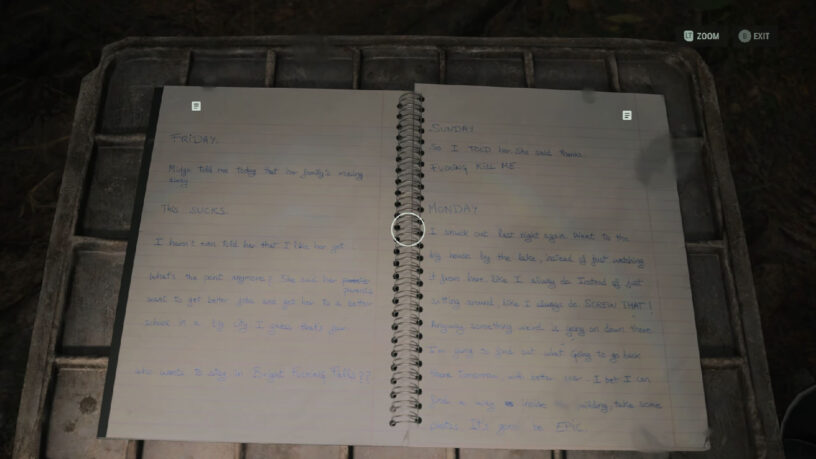 LT ZOOM
B EXIT
FRIDAY
told me today that her family's moving
away
This SUCKS.
I haven't even told her that I like her yet.
What's the point anymore? She said her
parents
want to get better jobs and get her to a better
school in a big city I guess that's fair
who wants to stay in Bright Falls??
SUNDAY
So I TOLD her. She said thanks.
FUCKING KILL ME
MONDAY
I snuck out last night again. Went to the
big house by the lake, instead of just watching
it from here like I always do. Instead of just
sitting around, like I always do. SCREW THAT!
Anyway, something weird is going on down there
I'm going to find out what. Going to go back
there tomorrow with better. I bet I can
find a way inside building, take some
It's gonna be EPIC.